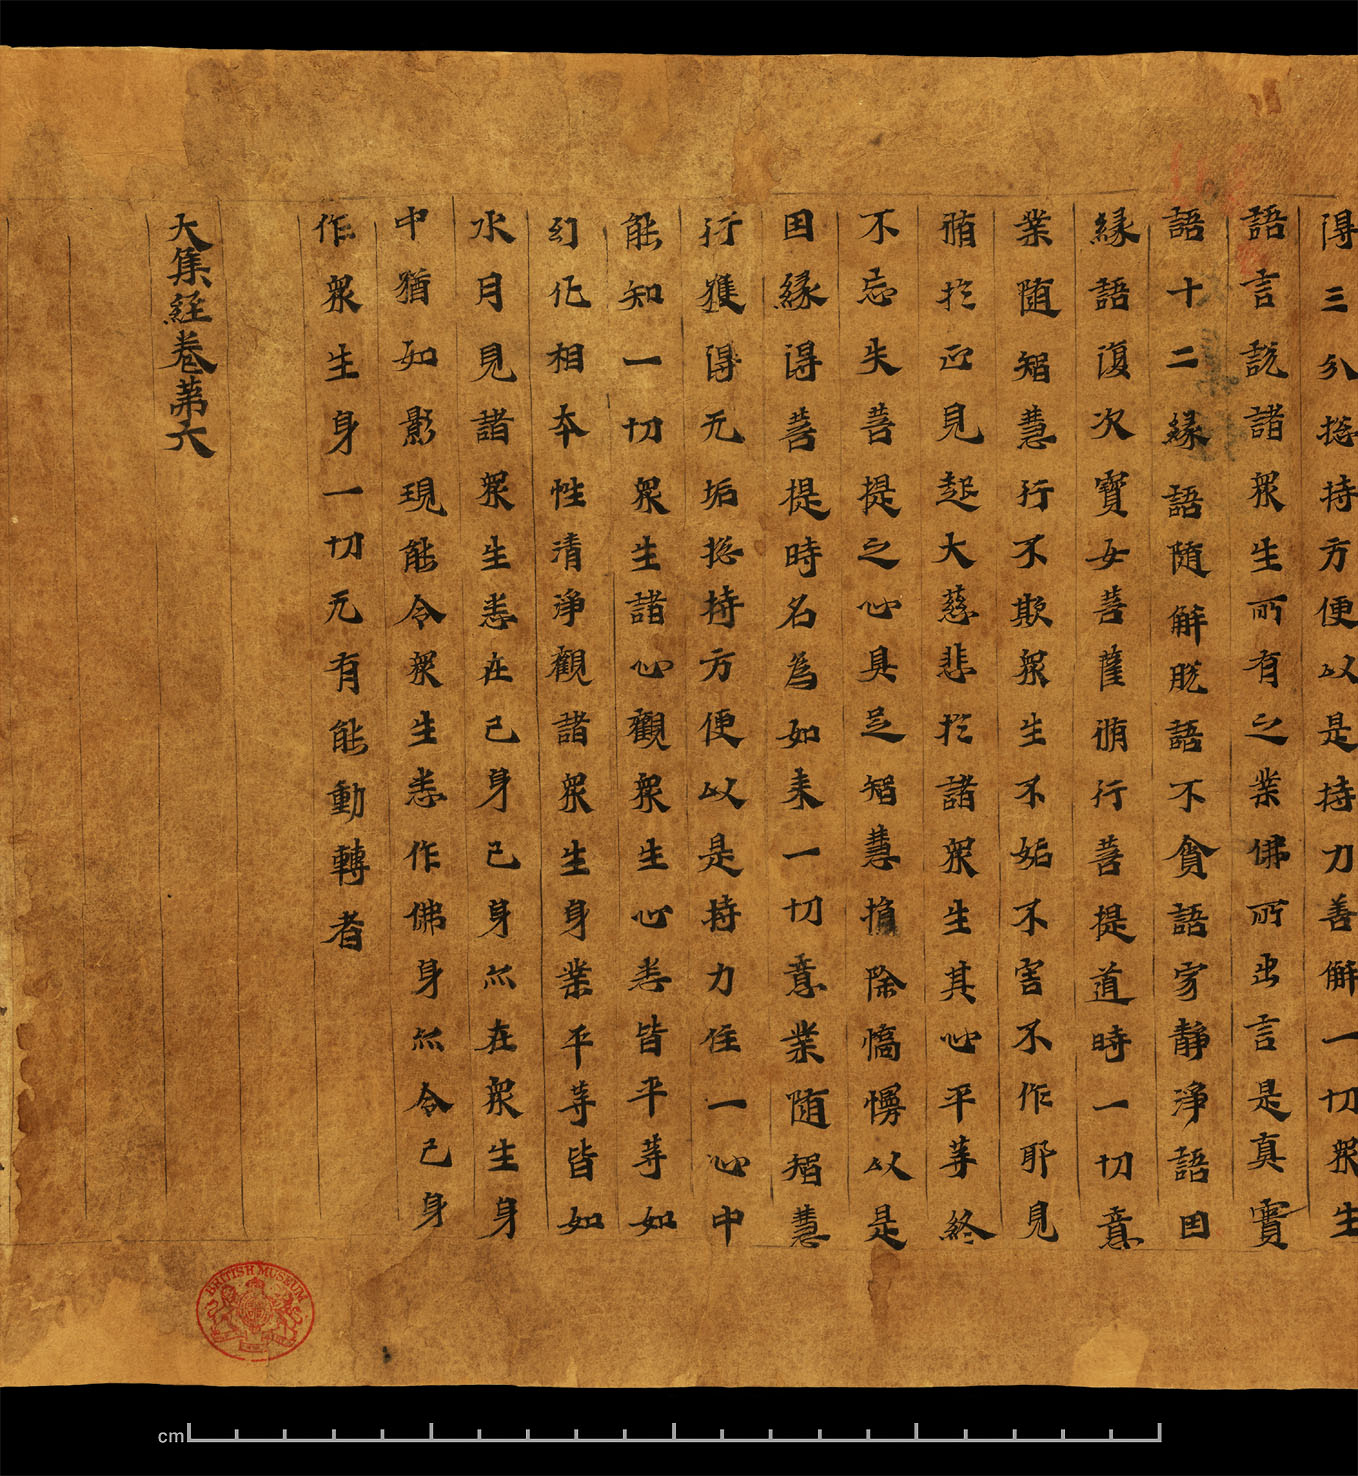 得三分捴持方便以是持力善解一切衆生
語言說諸衆生所有之業佛所出言是真實
語十二緣語隨解脫語不貪語寂靜淨語因
緣語復次寶女菩薩脩行菩提道時一切意
業隨智慧行不欺衆生不妬不害不作耶見
脩於正見起大慈悲於諸衆生其心平等終
不忘失菩提之心具足智慧損除憍慢以是
因緣得菩提時名為如来一切意業隨智慧
行獲得无垢捴持方便以是持力住一心中
能知一切衆生諸心觀衆生心悉皆平等如
幻化相本性清淨觀諸衆生身業平等皆如
水月見諸衆生悉在己身己身亦在衆生身
中猶如影現能令衆生悉作佛身亦令己身
作衆生身一切无有能動轉者
大集經卷第六
BRITISH MUSEUM
cm